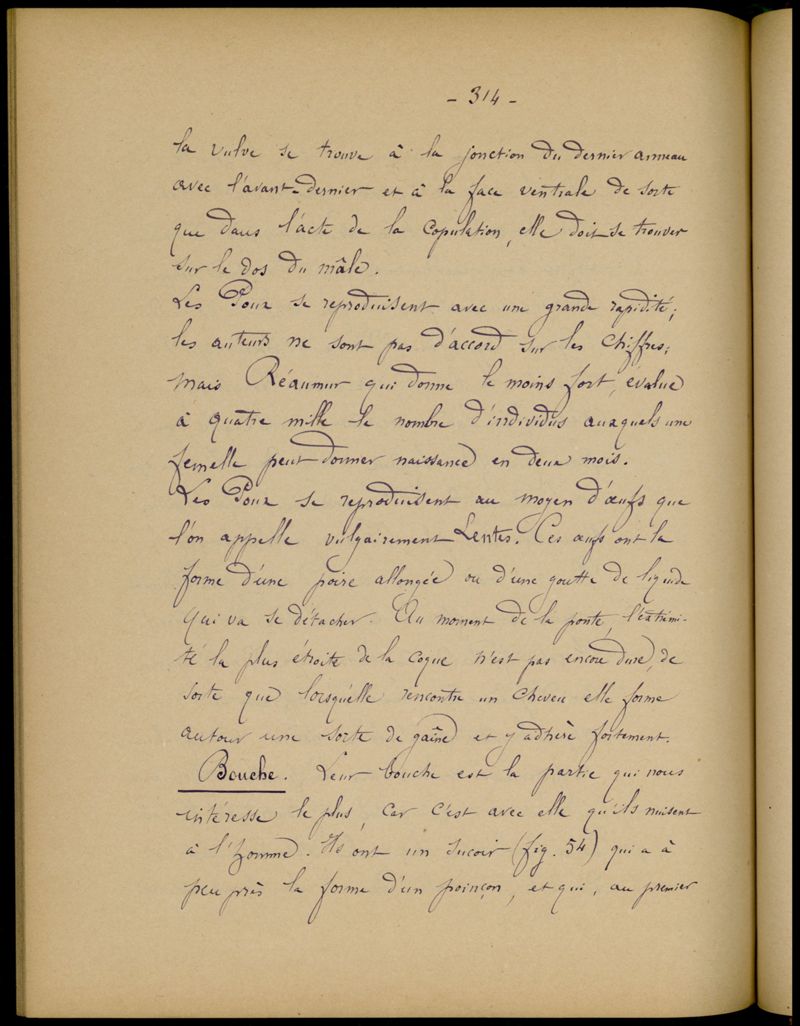 - 314 -
la vulve se trouve à la jonction du dernier anneau
avec l'avant-dernier et à la face ventrale de sorte
que dans l'acte de la copulation, elle doit se trouver
sur le dos du mâle.
Les Poux se reproduisent avec une grande rapidité;
les auteurs ne sont pas d'accord sur les chiffres;
mais Réaumur qui donne le moins fort, évalue
à quatre mille le nombre d'individus auxquels une
femelle peut donner naissance en deux mois.
Les Poux se reproduisent au moyen d'œufs que
l'on appelle vulgairement Lentes. Ces œufs ont la
forme d'une poire allongée ou d'une goutte de liquide
qui va se détacher. Au moment de la ponte, l'extrémi-
té la plus étroite de la coque n'est pas encore dure, de
sorte que lorsqu'elle rencontre un cheveu elle forme
autour une sorte de gaîne et y adhère fortement.
Bouche. Leur bouche est la partie qui nous
intéresse le plus, car c'est avec elle qu'ils nuisent
à l'homme. Ils ont un suçoir (fig. 54) qui a à
peu près la forme d'un poinçon, et qui, au premier